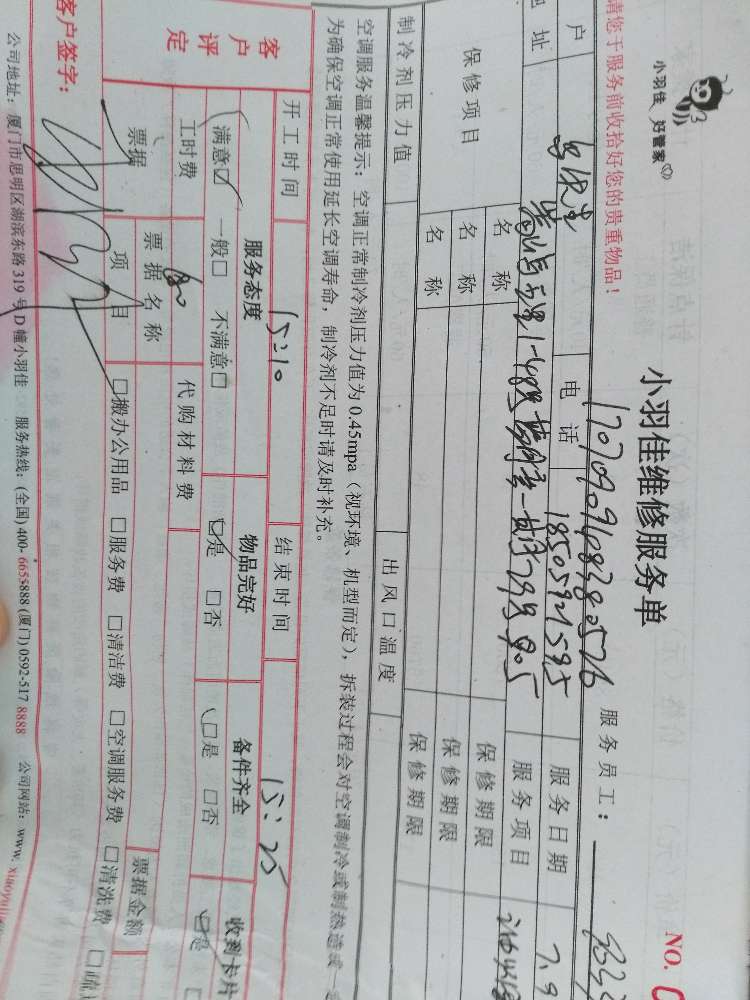 小羽佳 好管家
小羽佳维修服务单
NO.
请您于服务前收拾好您的贵重物品！
服务员工：
户
电话 18505921595
服务日期 7.9
地址
服务项目
保修项目
名称 保修期限
名称 保修期限
名称 保修期限
制冷剂压力值 出风口温度
空调服务温馨提示：空调正常制冷剂压力值为 0.45mpa（视环境、机型而定），拆装过程会对空调制冷或制热造成一
为确保空调正常使用延长空调寿命，制冷剂不足时请及时补充。
开工时间 15:10 结束时间 15:25
客户评定
服务态度 物品完好 备件齐全 收到卡片
满意☑ 一般□ 不满意□ □是 □否 □是 □否 □是
工时费 80 代购材料费
票据 票据名称 票据金额
项目 □搬办公用品 □服务费 □清洁费 □空调服务费 □清洗费
客户签字：
公司地址：厦门市思明区湖滨东路 319 号 D 幢小羽佳 服务热线：(全国) 400-6655888 (厦门) 0592-517 8888 公司网站：www.xiaoyujia